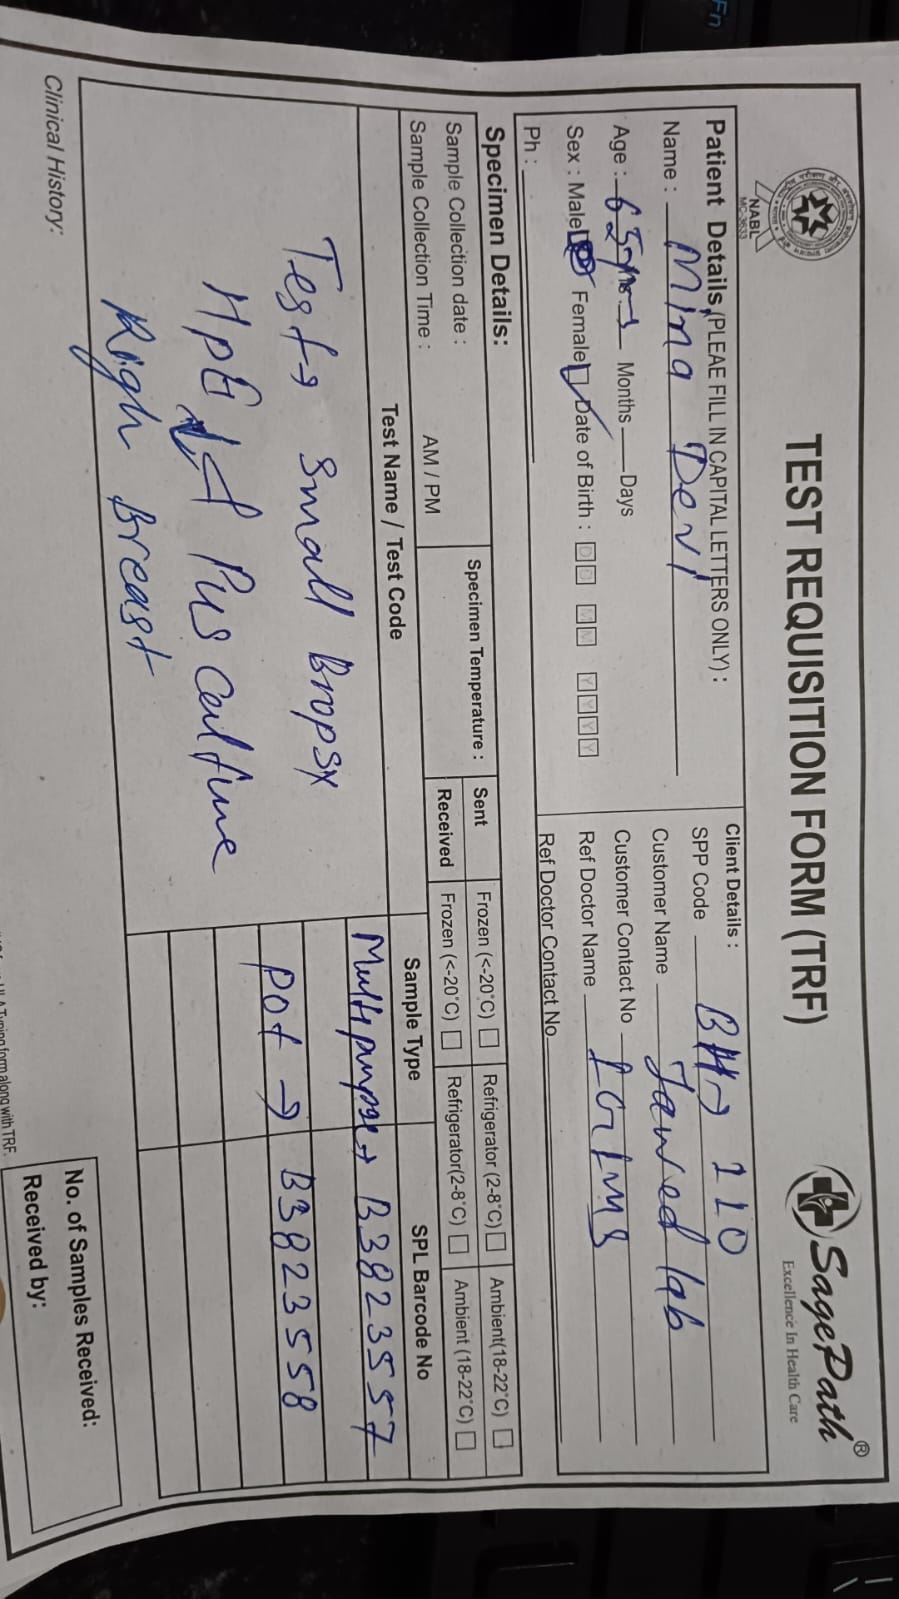 TEST REQUISITION FORM (TRF)
SagePath ®
Excellence In Health Care
NABL
MC-3633
Patient Details (PLEAE FILL IN CAPITAL LETTERS ONLY) :
Name : Mina Devi
Age : 65yrs Months Days
Sex : Male Female Date of Birth : D D M M Y Y Y Y
Ph :
Client Details :
SPP Code BH→ 110
Customer Name Jawed lab
Customer Contact No
Ref Doctor Name IGIMS
Ref Doctor Contact No
Specimen Details:
Sample Collection date :
Sample Collection Time : AM / PM
Specimen Temperature :
Sent Frozen (<-20°C) Refrigerator (2-8°C) Ambient(18-22°C)
Received Frozen (<-20°C) Refrigerator(2-8°C) Ambient (18-22°C)
Test Name / Test Code Sample Type SPL Barcode No
Test→ Small Bropsy
HPE Pus Culture
Righ Breast
Multipurpse→ B3823557
Pot → B3823558
Clinical History:
No. of Samples Received:
Received by:
Typing form along with TRF.
Fn